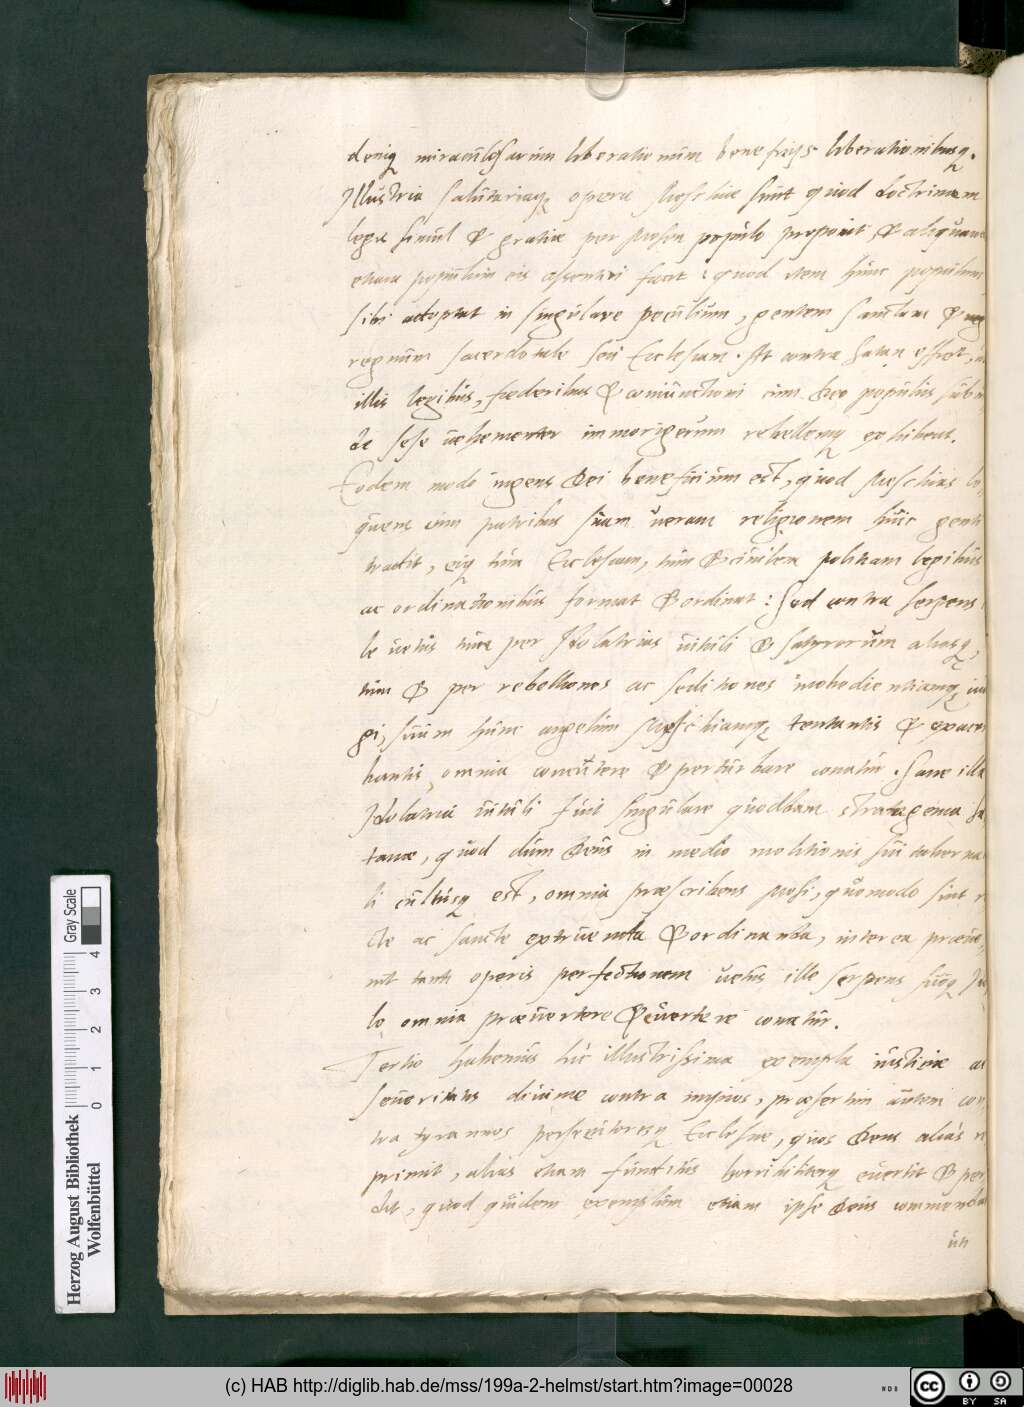 deniq̃ miraculosarum liberationum beneficijs liberationibusq̃.
Illustria salutariaq̃ opera Messiae sunt quod doctrinam
legis simul & gratiae per Mosen populo proponit, & aliquam
etiam populum eis assentiri facit: quod item hunc populum
sibi adoptat in singulare peculium, gentem sanctam &
regnum sacerdotale seu Ecclesiam. At contra Satan efficit,
illis legibus, foederibus & coniunctioni cum Deo populus sub
de sese vehementer immorigerum rebellemq̃ exhibeat.
Eodem modo ingens Dei beneficium est, quod Messias lo
quens cum patribus suam veram religionem huic genti
tradit, eiq̃ tum Ecclesiam, tum & civilem politiam legibus
ac ordinationibus format & ordinat: Sed contra serpens
le vetus tum per Idolatrias vituli & satyrorum aliasq̃,
tum & per rebelliones ac seditiones inobedientiamq̃
gi, suum hunc angelum Messiamq̃ tentantis & exacer
bantis omnia concutere & perturbare conatur. Sane illa
Idolatria vituli fuit singulare quoddam stratagema Sa
tanae, quod dum Deus in medio molitionis sui taberna
li cultusq̃ est, omnia praescribens Mosi, quomodo sint
cte ac sancte extruenda & ordinanda, interea praeve
nit tanti operis perfectionem vetus ille serpens suoq̃ Ido
lo omnia praevertere & evertere conatur.
Tertio habemus hic illustrissima exempla iustitiae ac
severitatis divinae contra impios, praesertim autem con
tra tyrannos persecutoresq̃ Ecclesiae, quos Deus alias
primit, alias etiam funditus horribiliterq̃ evertit & per
dit, quod quidem exemplum etiam ipse Deus commenda
un
Herzog August Bibliothek
Wolfenbüttel
0 1 2 3 4
Gray Scale
(c) HAB http://diglib.hab.de/mss/199a-2-helmst/start.htm?image=00028
cc BY SA